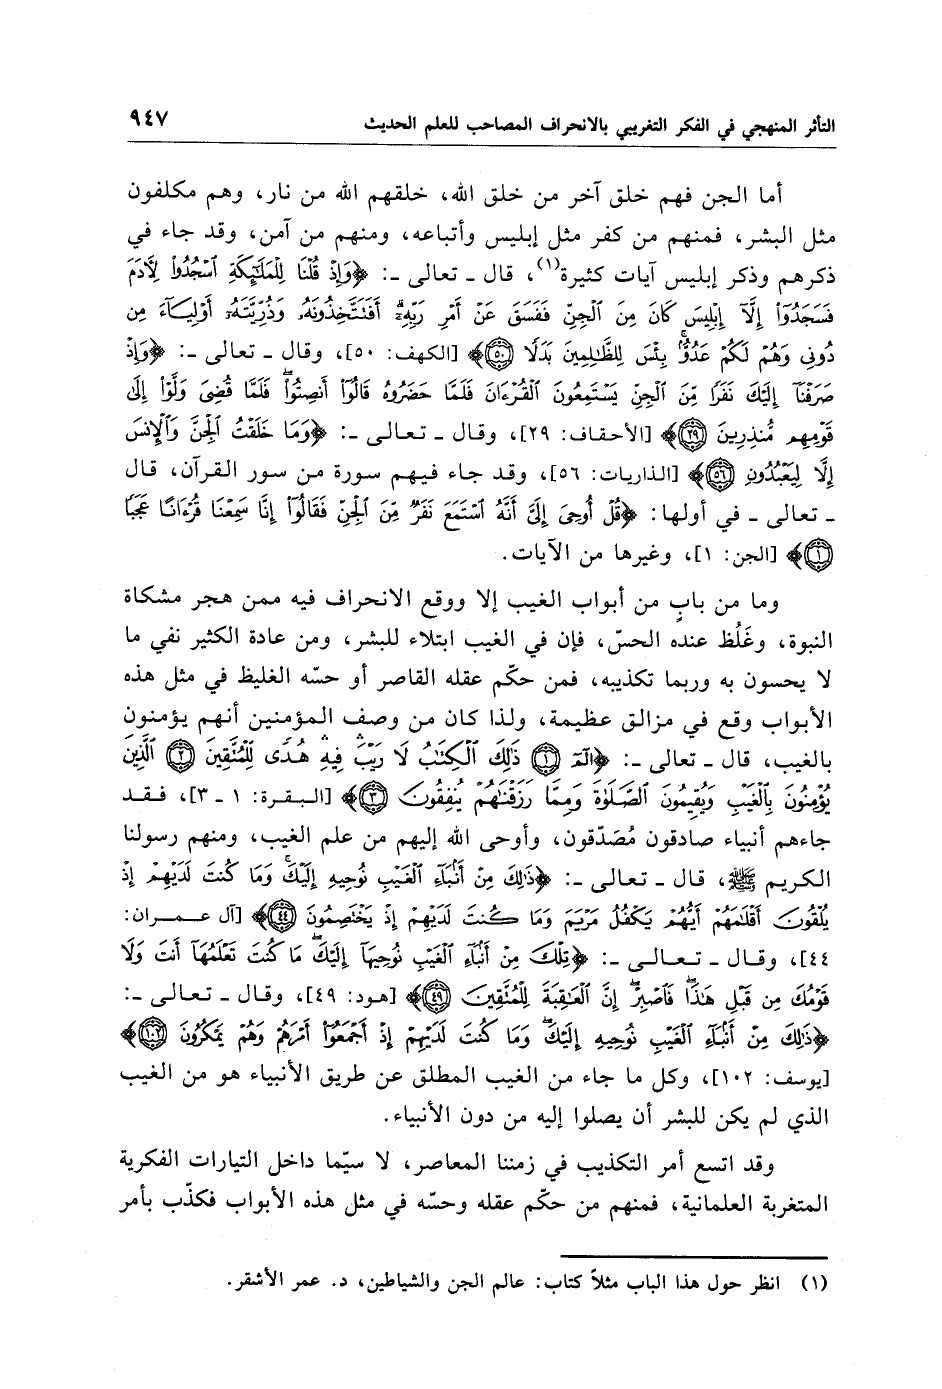 التأثر المنهجي في الفكر التغريبي بالانحراف المصاحب للعلم الحديث ٩٤٧
أما الجن فهم خلق آخر من خلق الله، خلقهم الله من نار، وهم مكلفون
مثل البشر، فمنهم من كفر مثل إبليس وأتباعه، ومنهم من آمن، وقد جاء في
ذكرهم وذكر إبليس آيات كثيرة(١)، قال ـ تعالى ـ: ﴿وَإِذْ قُلْنَا لِلْمَلَٰٓئِكَةِ ٱسْجُدُوا۟ لِـَٔادَمَ
فَسَجَدُوٓا۟ إِلَّآ إِبْلِيسَ كَانَ مِنَ ٱلْجِنِّ فَفَسَقَ عَنْ أَمْرِ رَبِّهِۦٓ أَفَتَتَّخِذُونَهُۥ وَذُرِّيَّتَهُۥٓ أَوْلِيَآءَ مِن
دُونِى وَهُمْ لَكُمْ عَدُوٌّۢ بِئْسَ لِلظَّٰلِمِينَ بَدَلًا ٥٠﴾ [الكهف: ٥٠]، وقال ـ تعالى ـ: ﴿وَإِذْ
صَرَفْنَآ إِلَيْكَ نَفَرًا مِّنَ ٱلْجِنِّ يَسْتَمِعُونَ ٱلْقُرْءَانَ فَلَمَّا حَضَرُوهُ قَالُوٓا۟ أَنصِتُوا۟ فَلَمَّا قُضِىَ وَلَّوْا۟ إِلَىٰ
قَوْمِهِم مُّنذِرِينَ ٢٩﴾ [الأحقاف: ٢٩]، وقال ـ تعالى ـ: ﴿وَمَا خَلَقْتُ ٱلْجِنَّ وَٱلْإِنسَ
إِلَّا لِيَعْبُدُونِ ٥٦﴾ [الذاريات: ٥٦]، وقد جاء فيهم سورة من سور القرآن، قال
ـ تعالى ـ في أولها: ﴿قُلْ أُوحِىَ إِلَىَّ أَنَّهُ ٱسْتَمَعَ نَفَرٌ مِّنَ ٱلْجِنِّ فَقَالُوٓا۟ إِنَّا سَمِعْنَا قُرْءَانًا عَجَبًا
١﴾ [الجن: ١]، وغيرها من الآيات.
وما من بابٍ من أبواب الغيب إلا ووقع الانحراف فيه ممن هجر مشكاة
النبوة، وغَلُظ عنده الحسّ، فإن في الغيب ابتلاء للبشر، ومن عادة الكثير نفي ما
لا يحسون به وربما تكذيبه، فمن حكّم عقله القاصر أو حسّه الغليظ في مثل هذه
الأبواب وقع في مزالق عظيمة، ولذا كان من وصف المؤمنين أنهم يؤمنون
بالغيب، قال ـ تعالى ـ: ﴿الٓمٓ ١ ذَٰلِكَ ٱلْكِتَٰبُ لَا رَيْبَ فِيهِ هُدًى لِّلْمُتَّقِينَ ٢ ٱلَّذِينَ
يُؤْمِنُونَ بِٱلْغَيْبِ وَيُقِيمُونَ ٱلصَّلَوٰةَ وَمِمَّا رَزَقْنَٰهُمْ يُنفِقُونَ ٣﴾ [البقرة: ١ ـ ٣]، فقد
جاءهم أنبياء صادقون مُصَدّقون، وأوحى الله إليهم من علم الغيب، ومنهم رسولنا
الكريم ﷺ، قال ـ تعالى ـ: ﴿ذَٰلِكَ مِنْ أَنۢبَآءِ ٱلْغَيْبِ نُوحِيهِ إِلَيْكَ وَمَا كُنتَ لَدَيْهِمْ إِذْ
يُلْقُونَ أَقْلَٰمَهُمْ أَيُّهُمْ يَكْفُلُ مَرْيَمَ وَمَا كُنتَ لَدَيْهِمْ إِذْ يَخْتَصِمُونَ ٤٤﴾ [آل عمران:
٤٤]، وقال ـ تعالى ـ: ﴿تِلْكَ مِنْ أَنۢبَآءِ ٱلْغَيْبِ نُوحِيهَآ إِلَيْكَ مَا كُنتَ تَعْلَمُهَآ أَنتَ وَلَا
قَوْمُكَ مِن قَبْلِ هَٰذَا فَٱصْبِرْ إِنَّ ٱلْعَٰقِبَةَ لِلْمُتَّقِينَ ٤٩﴾ [هود: ٤٩]، وقال ـ تعالى ـ:
﴿ذَٰلِكَ مِنْ أَنۢبَآءِ ٱلْغَيْبِ نُوحِيهِ إِلَيْكَ وَمَا كُنتَ لَدَيْهِمْ إِذْ أَجْمَعُوٓا۟ أَمْرَهُمْ وَهُمْ يَمْكُرُونَ ١٠٢﴾
[يوسف: ١٠٢]، وكل ما جاء من الغيب المطلق عن طريق الأنبياء هو من الغيب
الذي لم يكن للبشر أن يصلوا إليه من دون الأنبياء.
وقد اتسع أمر التكذيب في زمننا المعاصر، لا سيّما داخل التيارات الفكرية
المتغربة العلمانية، فمنهم من حكّم عقله وحسّه في مثل هذه الأبواب فكذّب بأمر
(١) انظر حول هذا الباب مثلاً كتاب: عالم الجن والشياطين، د. عمر الأشقر.